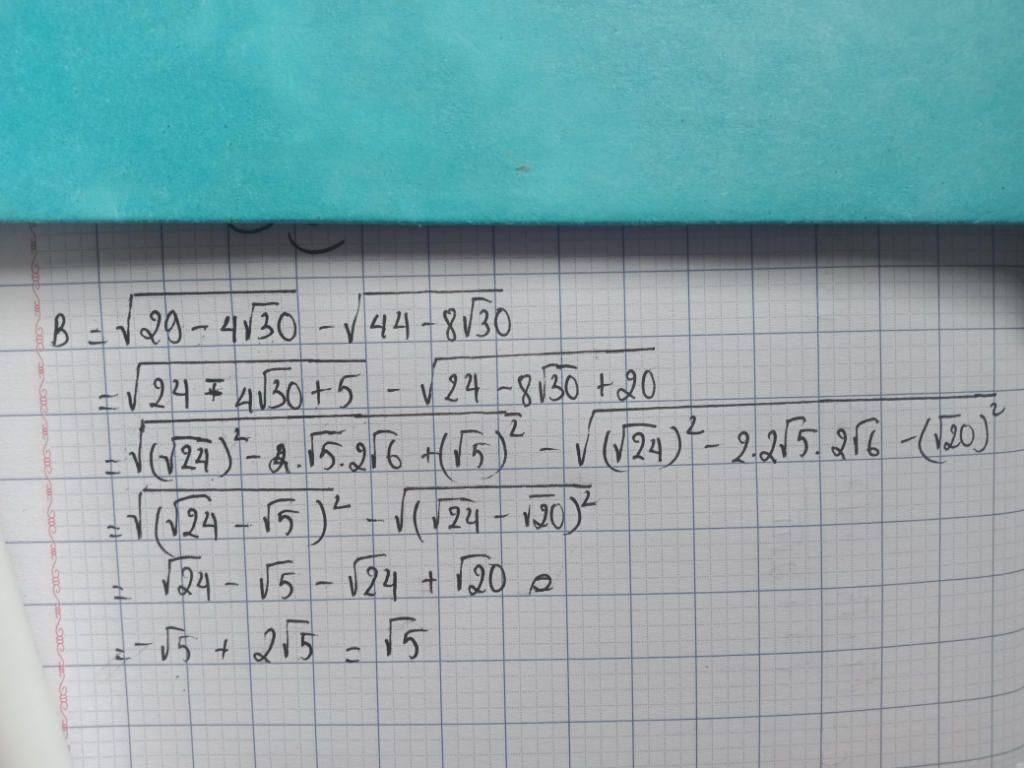 B = √(29 - 4√30) - √(44 - 8√30)
= √(24 - 4√30 + 5) - √(24 - 8√30 + 20)
= √((√24)² - 2.√5.2√6 + (√5)²) - √((√24)² - 2.2√5.2√6 - (√20)²)
= √((√24 - √5)²) - √((√24 - √20)²)
= √24 - √5 - √24 + √20
= -√5 + 2√5 = √5